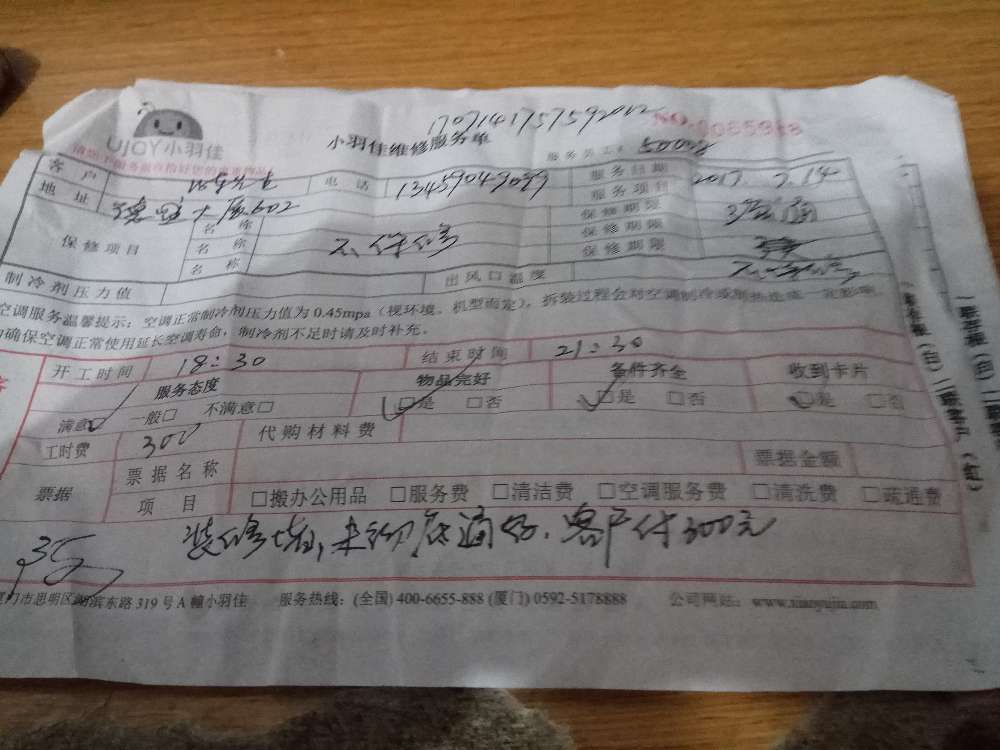 1707141757592012
UJOY小羽佳
小羽佳维修服务单
NO.
服务员工号
客户
电话
13459049099
服务日期
2017 7.14
地址
大厦602
服务项目
保修项目
名称
不保修
保修期限
名称
保修期限
名称
保修期限
制冷剂压力值
出风口温度
空调服务温馨提示：空调正常制冷剂压力值为0.45mpa（视环境、机型而定），拆装过程会对空调制冷或制热造成一定影响，
确保空调正常使用延长空调寿命，制冷剂不足时请及时补充。
开工时间 18:30 结束时间 21:30
服务态度 物品完好 备件齐全 收到卡片
满意□ 一般□ 不满意□ □是 □否 □是 □否 □是 □否
工时费 300 代购材料费
票据 票据名称 票据金额
项目 □搬办公用品 □服务费 □清洁费 □空调服务费 □清洗费 □疏通费
客户付300元
门市思明区湖滨东路319号A幢小羽佳 服务热线：(全国) 400-6655-888 (厦门) 0592-5178888 公司网站：www.xiaoyujia.com